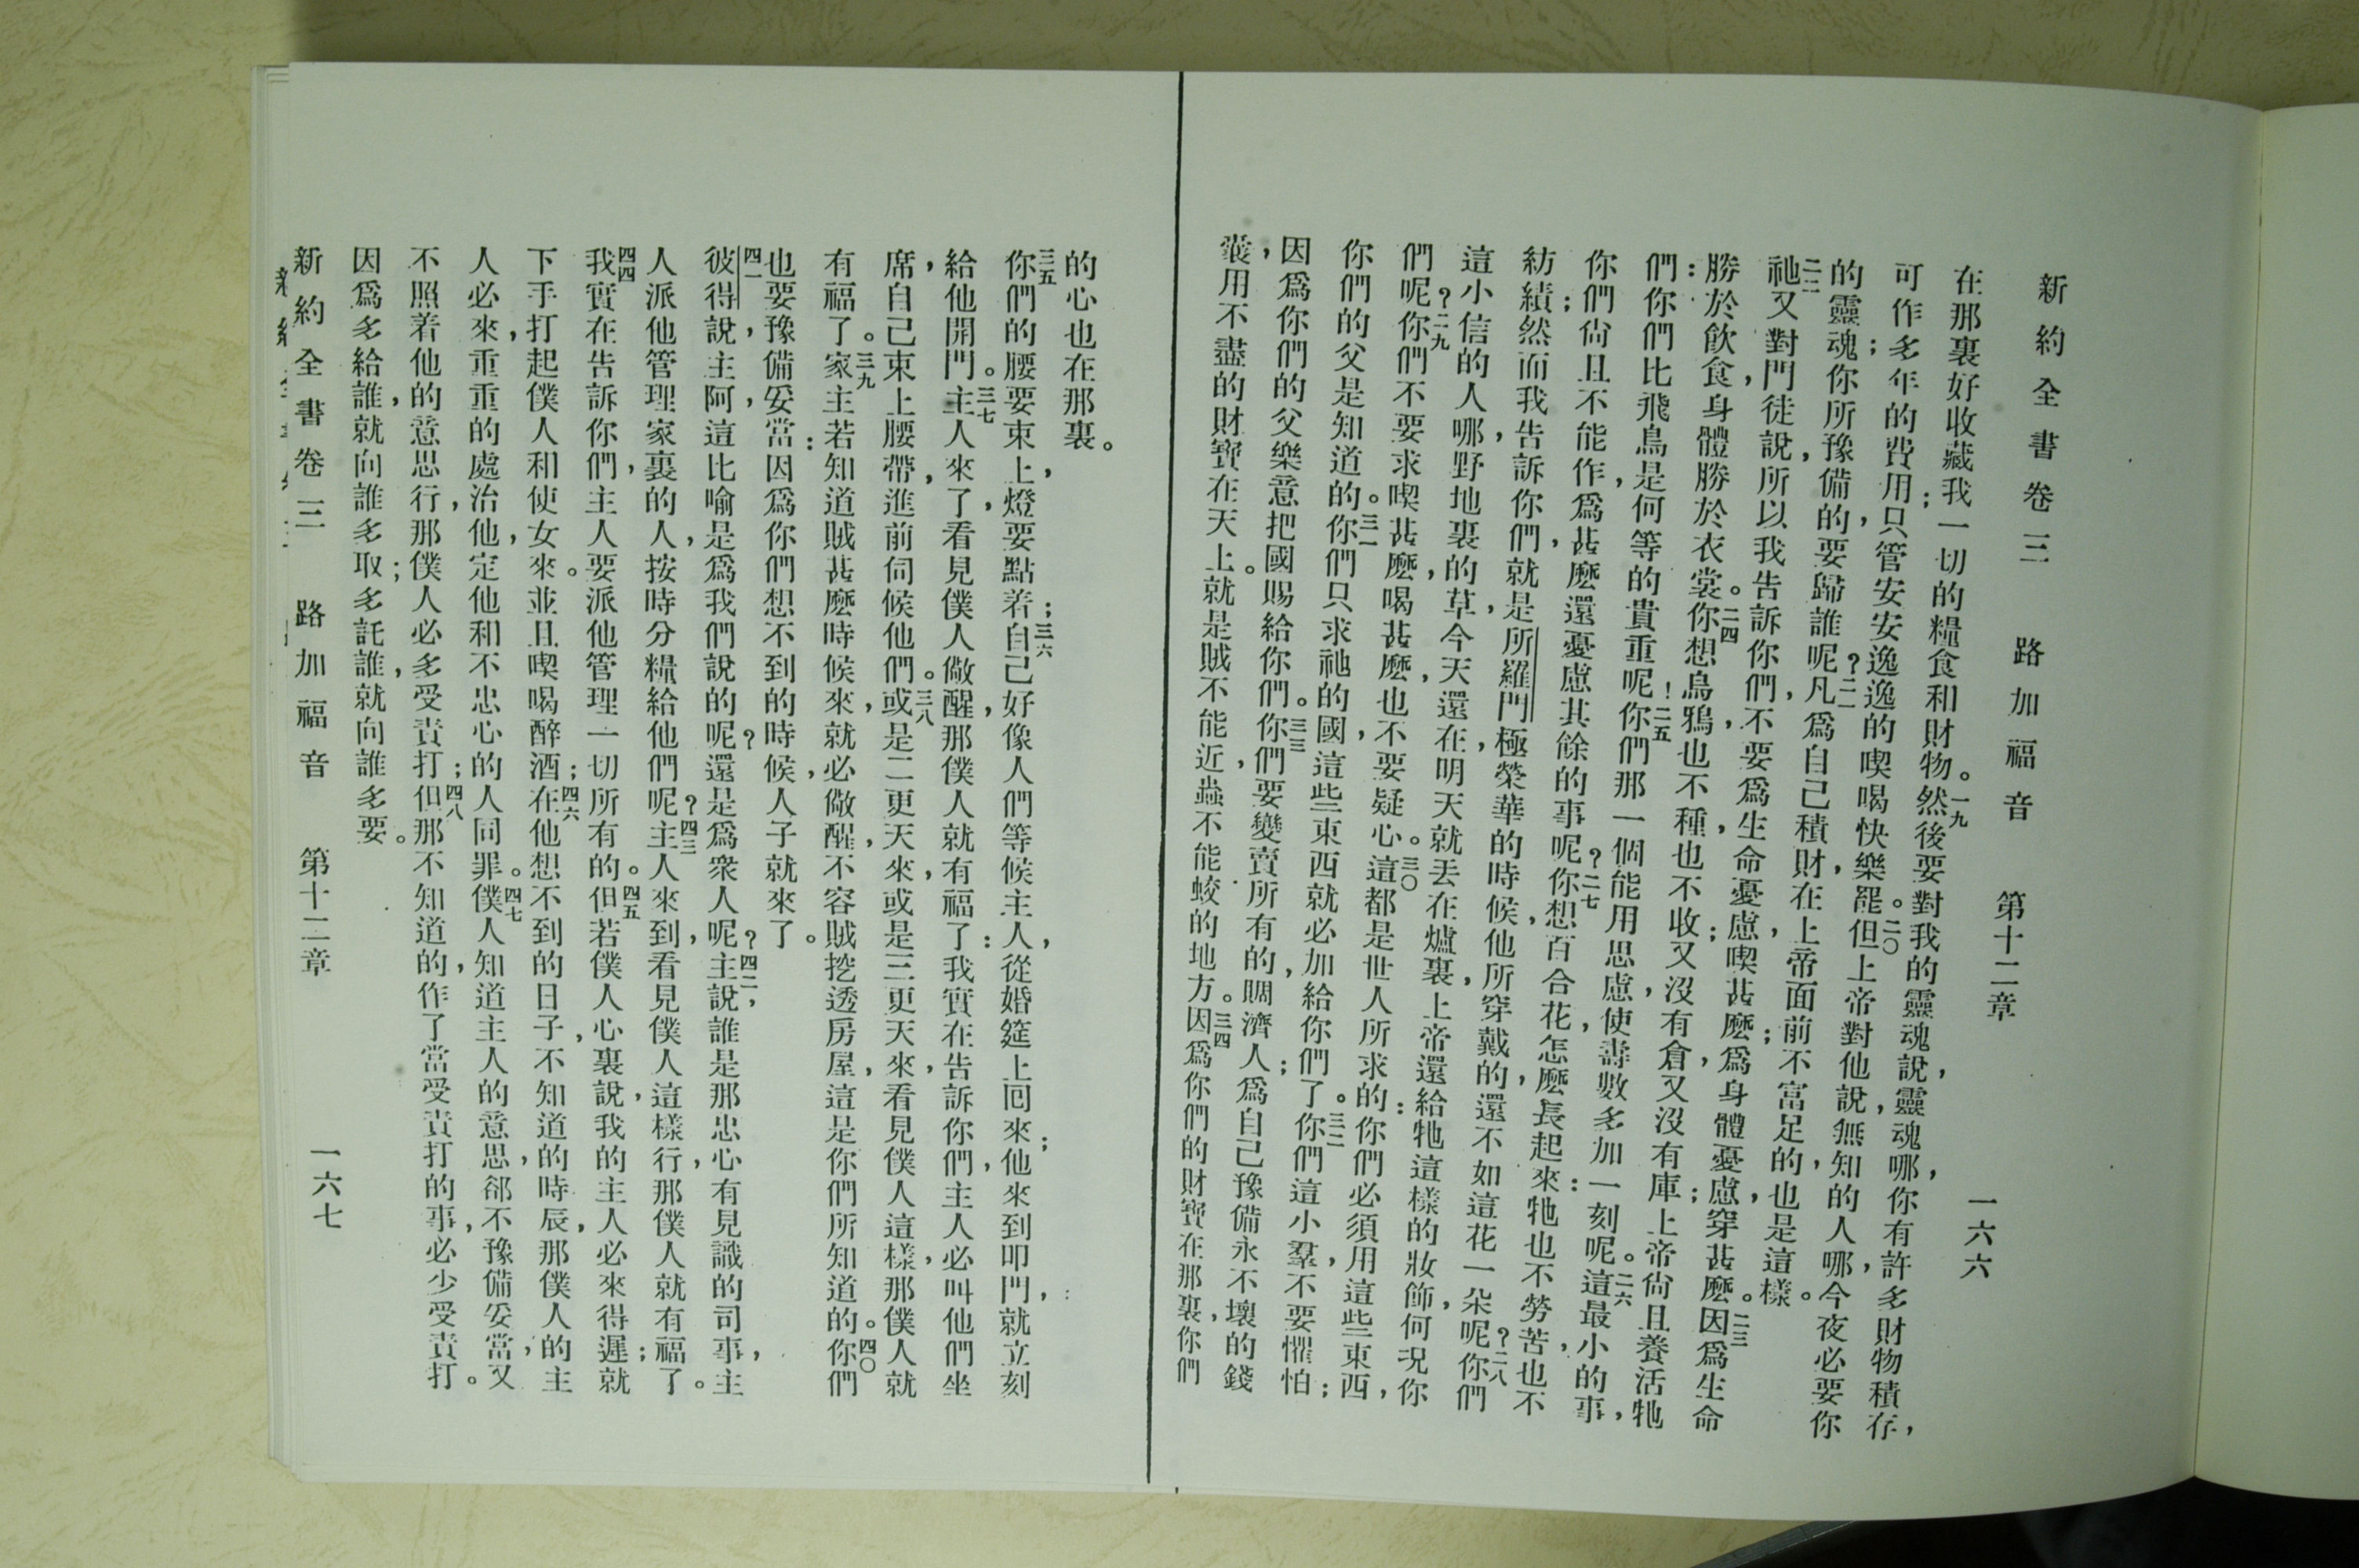 新約全書卷三 路加福音 第十二章 一六六
在那裏好收藏我一切的糧食和財物。一九然後要對我的靈魂說，靈魂哪，你有許多財物積存，
可作多年的費用；只管安安逸逸的喫喝快樂罷。二〇但上帝對他說，無知的人哪，今夜必要你
的靈魂；你所豫備的，要歸誰呢？二一凡爲自己積財，在上帝面前不富足的，也是這樣。
二二祂又對門徒說，所以我告訴你們，不要爲生命憂慮，喫甚麼；爲身體憂慮，穿甚麼。二三因爲生命
勝於飲食，身體勝於衣裳。二四你想烏鴉，也不種，也不收；又沒有倉，又沒有庫；上帝尙且養活牠
們：你們比飛鳥是何等的貴重呢！二五你們那一個能用思慮，使壽數多加一刻呢。二六這最小的事，
你們尙且不能作，爲甚麼還憂慮其餘的事呢？二七你想百合花，怎麼長起來：牠也不勞苦，也不
紡績；然而我告訴你們，就是所羅門極榮華的時候，他所穿戴的，還不如這花一朵呢？二八你們
這小信的人哪，野地裏的草，今天還在，明天就丟在爐裏，上帝還給牠這樣的妝飾，何況你
們呢？二九你們不要求喫甚麼，喝甚麼，也不要疑心。三〇這都是世人所求的：你們必須用這些東西，
你們的父是知道的。三一你們只求祂的國，這些東西就必加給你們了。三二你們這小羣，不要懼怕；
因爲你們的父樂意把國賜給你們。三三你們要變賣所有的，賙濟人；爲自己豫備永不壞的錢
囊，用不盡的財寶在天上。就是賊不能近，蟲不能蛟的地方。三四因爲你們的財寶在那裏，你們
的心也在那裏。
三五你們的腰要束上，燈要點着；三六自己好像人們等候主人，從婚筵上囘來；他來到叩門，就立刻
給他開門。三七主人來了，看見僕人儆醒，那僕人就有福了：我實在告訴你們，主人必叫他們坐
席，自己束上腰帶，進前伺候他們。三八或是二更天來，或是三更天來，看見僕人這樣，那僕人就
有福了。三九家主若知道賊甚麼時候來，就必儆醒，不容賊挖透房屋，這是你們所知道的。四〇你們
也要豫備妥當：因爲你們想不到的時候，人子就來了。
四一彼得說，主阿，這比喻是爲我們說的呢？還是爲衆人呢？四二主說，誰是那忠心有見識的司事，主
人派他管理家裏的人，按時分糧給他們呢？四三主人來到，看見僕人這樣行，那僕人就有福了。
四四我實在告訴你們，主人要派他管理一切所有的。四五但若僕人心裏說，我的主人必來得遲；就
下手打起僕人和使女來。並且喫喝醉酒；四六在他想不到的日子，不知道的時辰，那僕人的主
人必來，重重的處治他，定他和不忠心的人同罪。四七僕人知道主人的意思，郤不豫備妥當，又
不照着他的意思行，那僕人必多受責打；四八但那不知道的，作了當受責打的事，必少受責打。
因爲多給誰，就向誰多取；多託誰，就向誰多要。
新約全書卷三 路加福音 第十二章 一六七